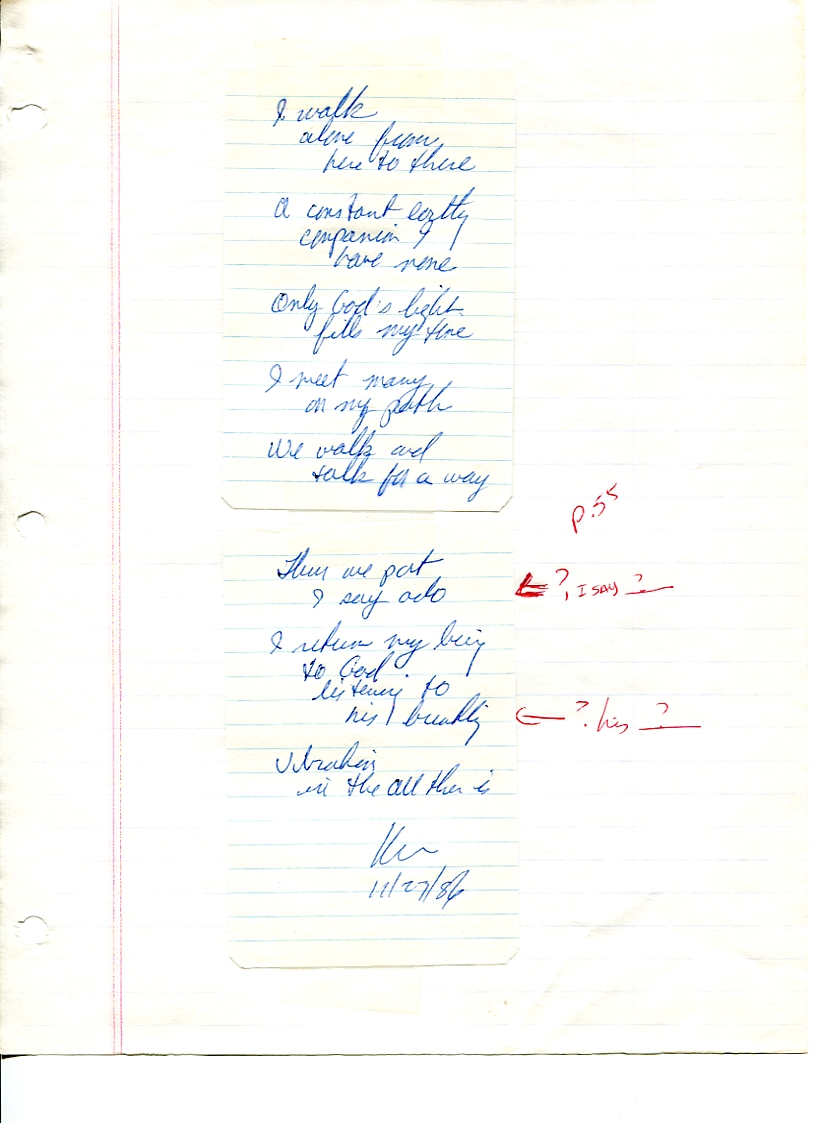 I walk
alone from
here to there
A constant earthly
companion I
have none
Only God's light
fills my time
I meet many
on my path
We walk and
talk for a way
p. 55
Then we part
I say
?, I SAY ?
I return my being
to God
listening to
his
? his ?
Vibration
in the all ther is
Ken
11/27/86